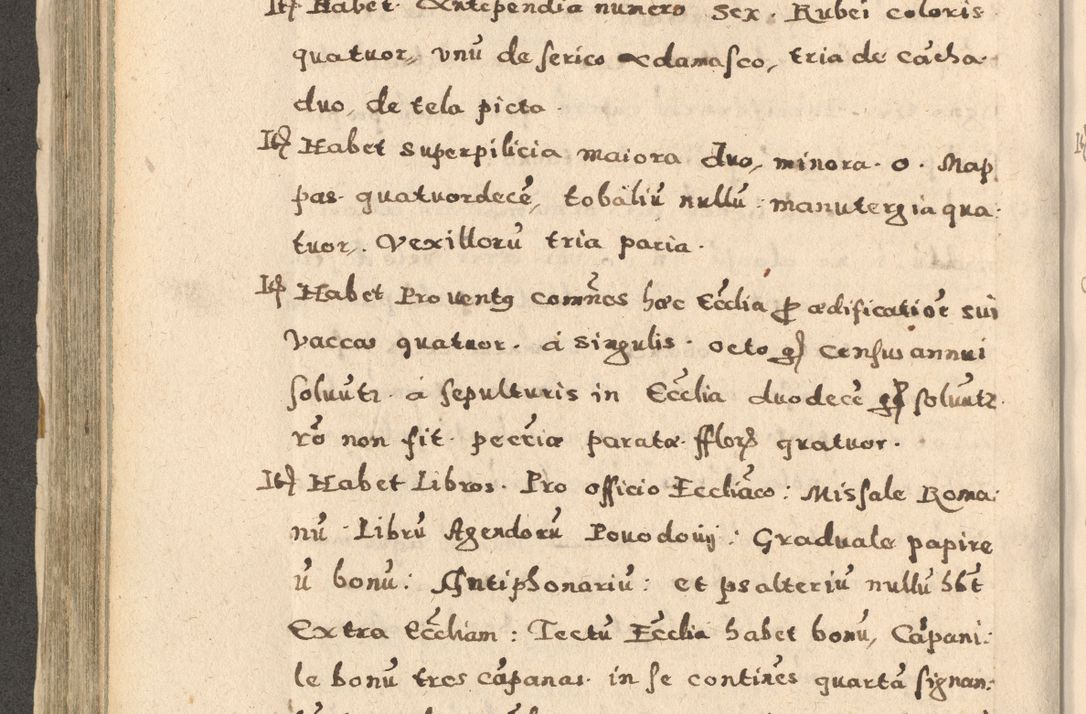 Itẽ Habet Antependia numero Sex. Rubei coloris
quatuor, vnũ de serico adamasco, tria de cãcha
duo, de tela picta.
Itẽ Habet superpilicia maiora duo, minora. 0. Map
pas quatuordecẽ, tobaliũ nullũ: manutergia qua:
tuor,. Vexillorũ tria paria.
Itẽ Habet Prouentus com̃nes hæc Eccl̃ia pro ædificatiõe sui
Vaccas quatuor. à singulis. octo gʒ census annui
soluũtr. à sepulturis in Eccl̃ia duodecẽ gʒ soluũtr.
rõ non fit. pecũia parata fflorʒ quatuor.
Itẽ Habet Libros. Pro officio Eccliãco: Missale Roma:
nũ. Librũ Agendorũ Pouodouij: Graduale papire
ũ bonũ: Antiphonariũ: et psalteriũ nullũ hb̃t
Extra Eccl̃iam: Tectũ Eccl̃ia habet bonũ, Cãpani:
le bonũ tres cãpanas in se contines quartã signan: